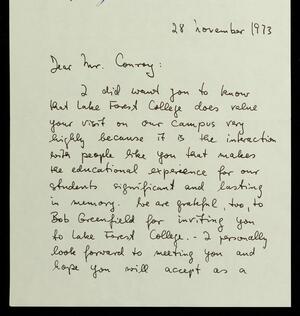 28 november 1973
Dear Mr. Conroy:
I did want you to know
that Lake Forest College does value
your visit on our campus very
highly because it is the interaction
with people like you that makes
the educational experience for our
students significant and lasting
in memory. We are grateful, too, to
Bob Greenfield for inviting you
to Lake Forest College. - I personally
look forward to meeting you and
hope you will accept as a